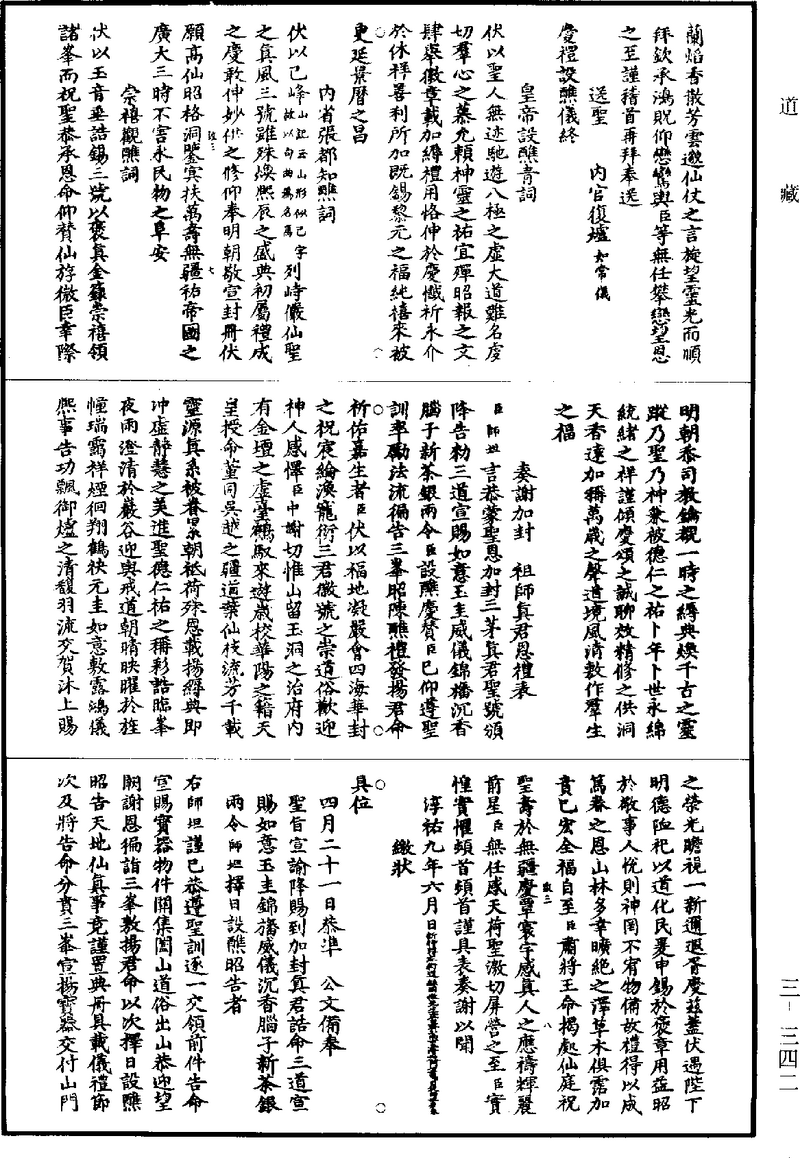 道藏
蘭焰香散芳雲邀仙仗之言旋望靈光而順
拜欽承鴻貺仰戀鸞輿臣等無任攀戀望恩
之至謹稽首再拜奉送
送聖　內官復爐如常儀
慶禮設醮儀終
皇帝設醮青詞
伏以聖人無迹馳遊八極之虛大道難名虔
切羣心之慕允賴神靈之祐宜殫昭報之文
肆舉徽章載加縟禮用恪伸於慶懺祈永介
於休祥善利所加既錫黎元之福純禧來被
更延景曆之昌
內省張都知醮詞
伏以己峰列峙儼仙聖
之真風三號雖殊煥熙辰之盛典初屬禮成
之慶敢伸妙供之修仰奉明朝敬宣封冊伏
願高仙昭格洞鑒寅扶萬壽無疆祐帝國之
廣大三時不害永民物之阜安
崇禧觀醮詞
伏以玉音垂誥錫三號以褒真金籙崇禧領
諸峯而祝聖恭承恩命仰贊仙游微臣幸際
明朝忝司教鑰覩一時之縟典煥千古之靈
蹤乃聖乃神兼被德仁之祐卜年卜世永綿
統緒之祥謹傾慶頌之誠聊效精修之供洞
天香達加稱萬歲之聲道境風清敷作羣生
之福
奏謝加封　祖師真君恩禮表
臣師坦言恭蒙聖恩加封三茅真君聖號頒
降告勑三道宣賜如意玉圭威儀錦旛沉香
腦子新茶銀兩令臣設醮慶贊臣已仰遵聖
訓率勵法流徧告三峯昭陳醮禮發揚君命
祈佑嘉生者臣伏以福地凝嚴會四海華封
之祝宸綸渙寵衍三君徽號之崇道俗歡迎
神人感懌臣中謝切惟山留玉洞之治府內
有金壇之虛臺鶴馭來遊歲校華陽之籍天
皇授命董司吳越之疆道葉仙枝流芳千載
靈源真系被眷累朝祗荷殊恩載揚經典即
沖虛靜慧之美進聖德仁祐之稱彩誥臨峯
夜雨澄清於巖谷迎與戒道朝晴映曜於旌
幢瑞靄祥煙徊翔鶴袂元圭如意敷露鴻儀
熙事告功飄御爐之清馥羽流交賀沐上賜
之榮光瞻視一新邇遐胥慶茲蓋伏遇陛下
明德血祀以道化民憂申錫於褒章用益昭
於敬事人悅則神罔不宥物備故禮得以成
萬眷之恩山林多幸曠絶之澤草木俱霑加
賁已宏全福自至臣肅將王命揭處仙庭祝
聖壽於無疆慶覃寰宇感真人之應禱輝麗
前星臣無任感天荷聖激切屏營之至臣實
惶實懼頓首頓首謹具表奏謝以聞
淳祐九年六月日
繳狀
具位
四月二十一日恭準　公文備奉
聖旨宣諭降賜到加封真君誥命三道宣
賜如意玉圭錦旛威儀沉香腦子新茶銀
兩令師坦擇日設醮昭告者
右師坦謹已恭遵聖訓逐一交領前件告命
宣賜寶器物件關集闔山道俗出山恭迎望
闕謝恩徧詣三峯敷揚君命以次擇日設醮
昭告天地仙真事竟謹置典冊具載儀禮節
次及將告命分賁三峯宣揚寶器交付山門
三－三四二